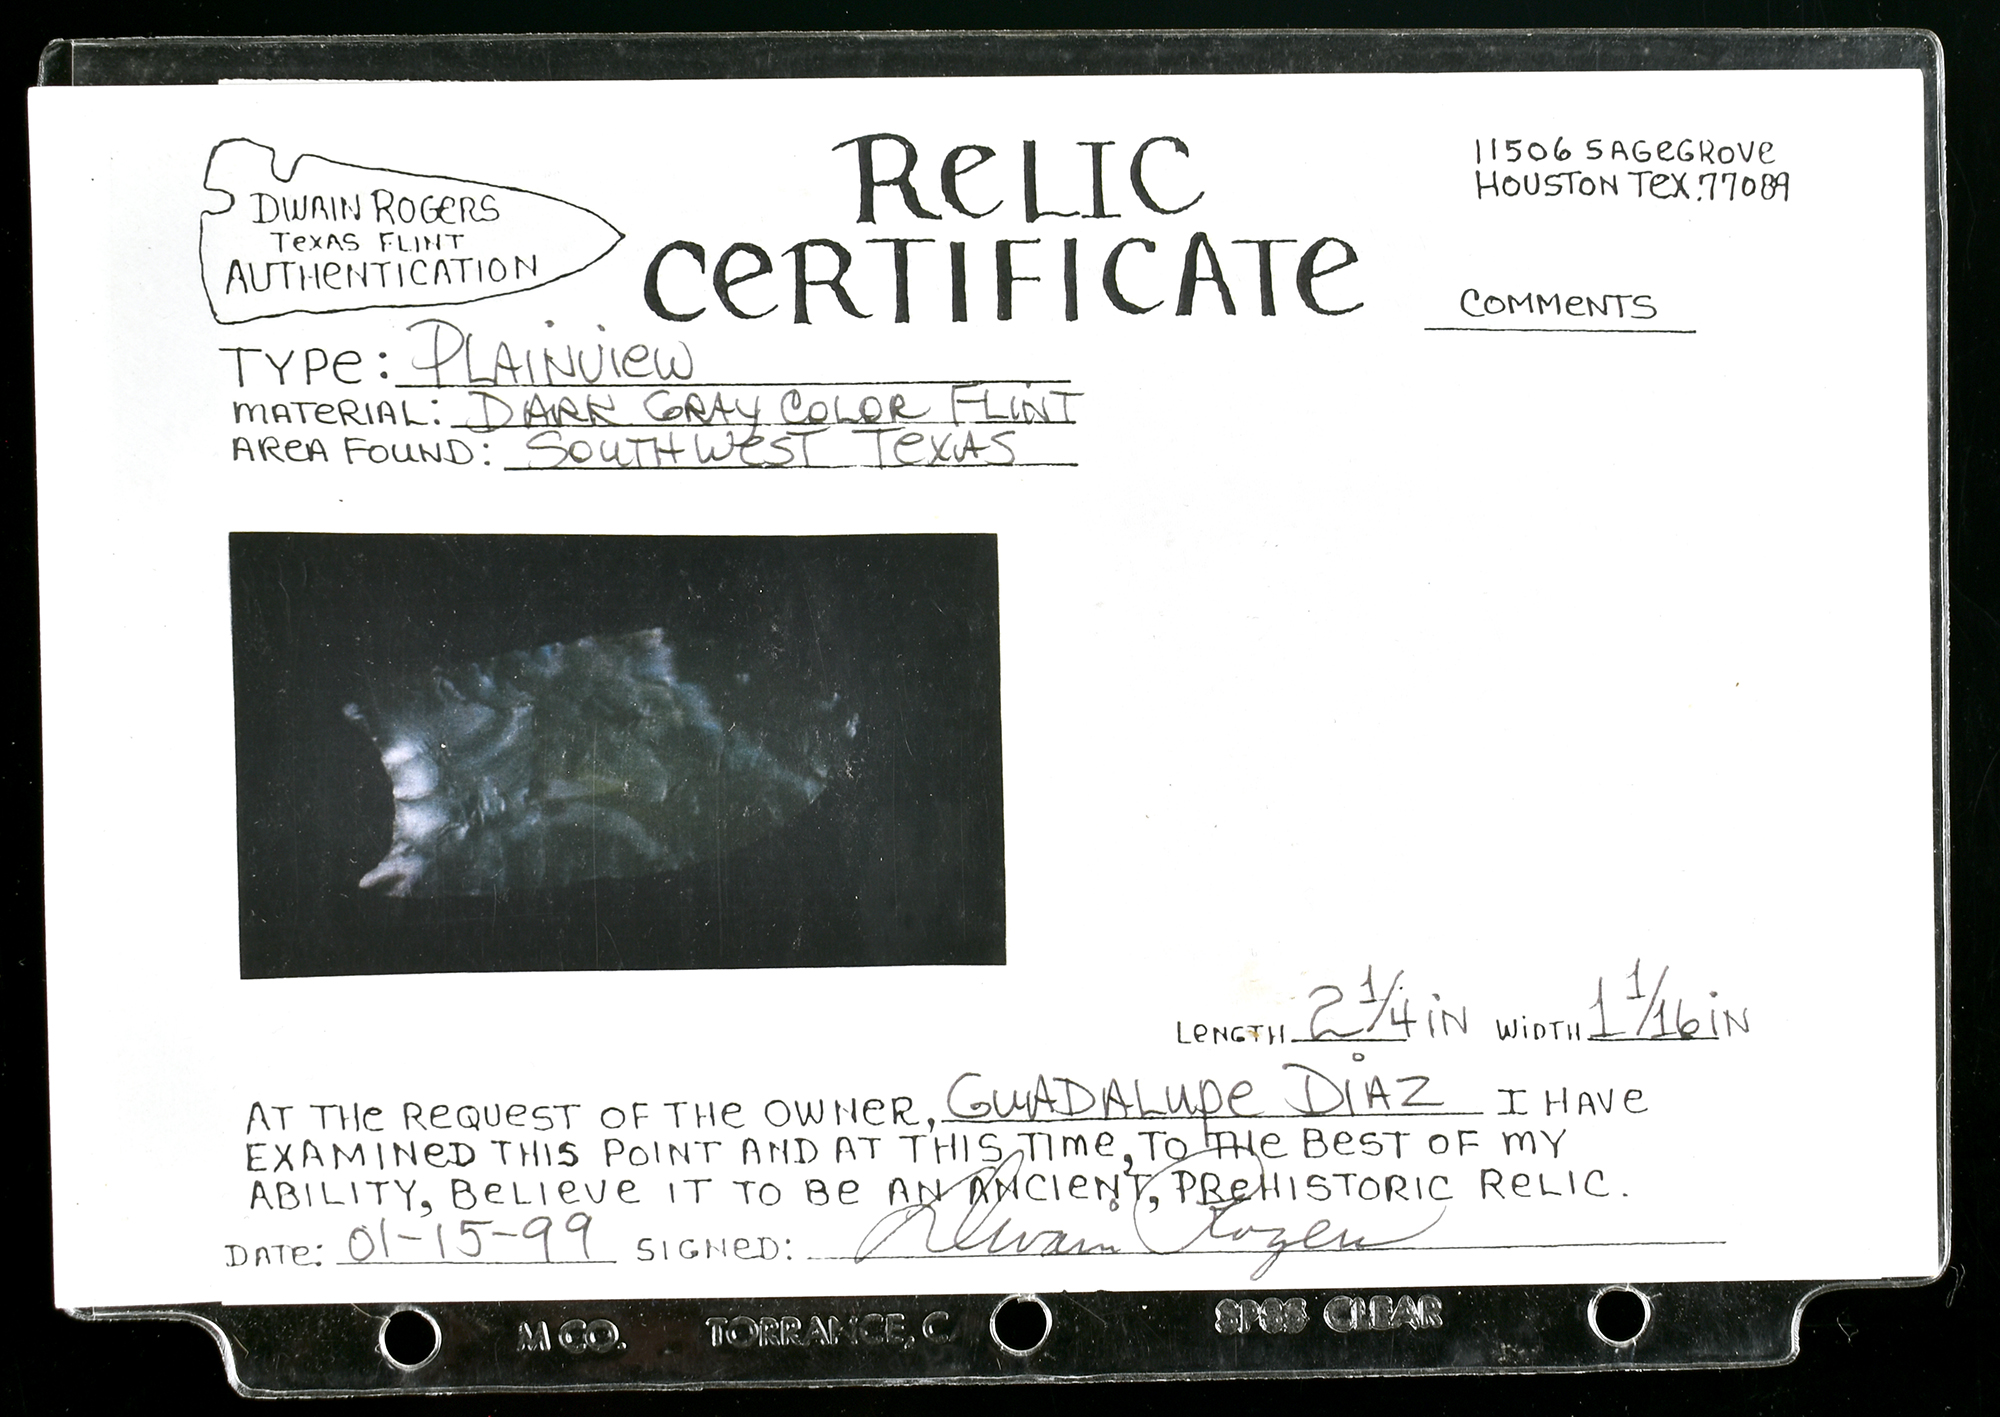 DWAIN ROGERS
TEXAS FLINT
AUTHENTICATION
RELIC
CERTIFICATE
11506 SAGEGROVE
HOUSTON TEX.77089
COMMENTS
TYPE: PLAINVIEW
MATERIAL: DARK GRAY COLOR FLINT
AREA FOUND: SOUTHWEST TEXAS
LENGTH 2 1/4 IN WIDTH 1 1/16 IN
AT THE REQUEST OF THE OWNER, GUADALUPE DIAZ I HAVE
EXAMINED THIS POINT AND AT THIS TIME, TO THE BEST OF MY
ABILITY, BELIEVE IT TO BE AN ANCIENT, PREHISTORIC RELIC.
DATE: 01-15-99 SIGNED: Dwain Rogers
M CO. TORRANCE, C SP8S CLEAR